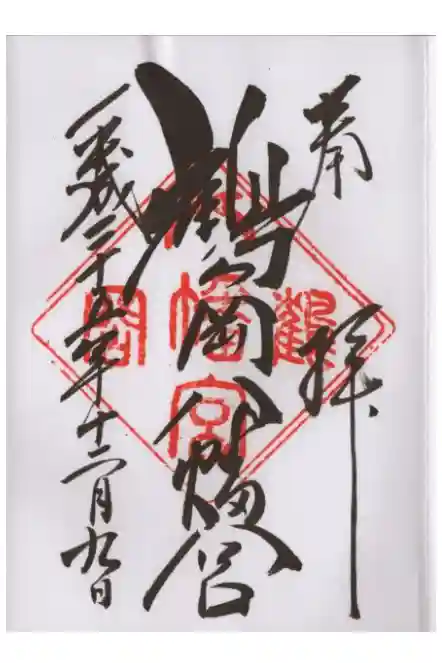 奉拝
鶴岡八幡宮
平成二十五年十二月九日
鶴
八幡宮
岡